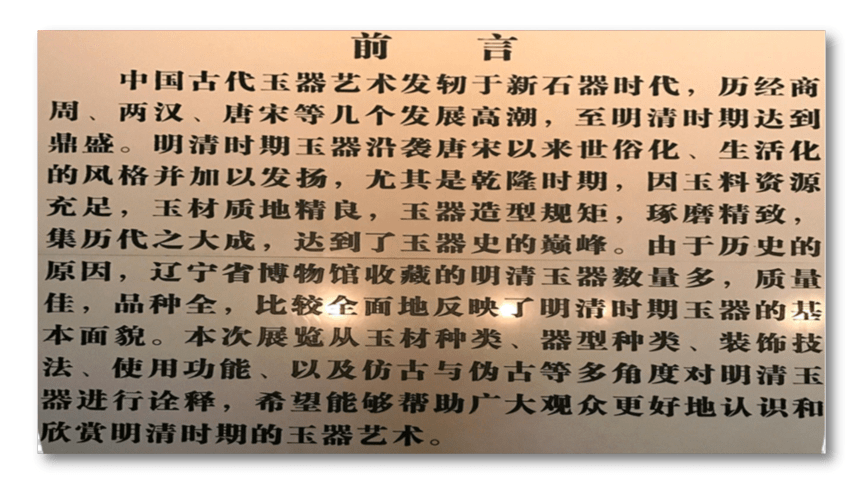 前言
中国古代玉器艺术发轫于新石器时代，历经商
周、两汉、唐宋等几个发展高潮，至明清时期达到
鼎盛。明清时期玉器沿袭唐宋以来世俗化、生活化
的风格并加以发扬，尤其是乾隆时期，因玉料资源
充足，玉材质地精良，玉器造型规矩，琢磨精致，
集历代之大成，达到了玉器史的巅峰。由于历史的
原因，辽宁省博物馆收藏的明清玉器数量多，质量
佳，品种全，比较全面地反映了明清时期玉器的基
本面貌。本次展览从玉材种类、器型种类、装饰技
法、使用功能、以及仿古与伪古等多角度对明清玉
器进行诠释，希望能够帮助广大观众更好地认识和
欣赏明清时期的玉器艺术。